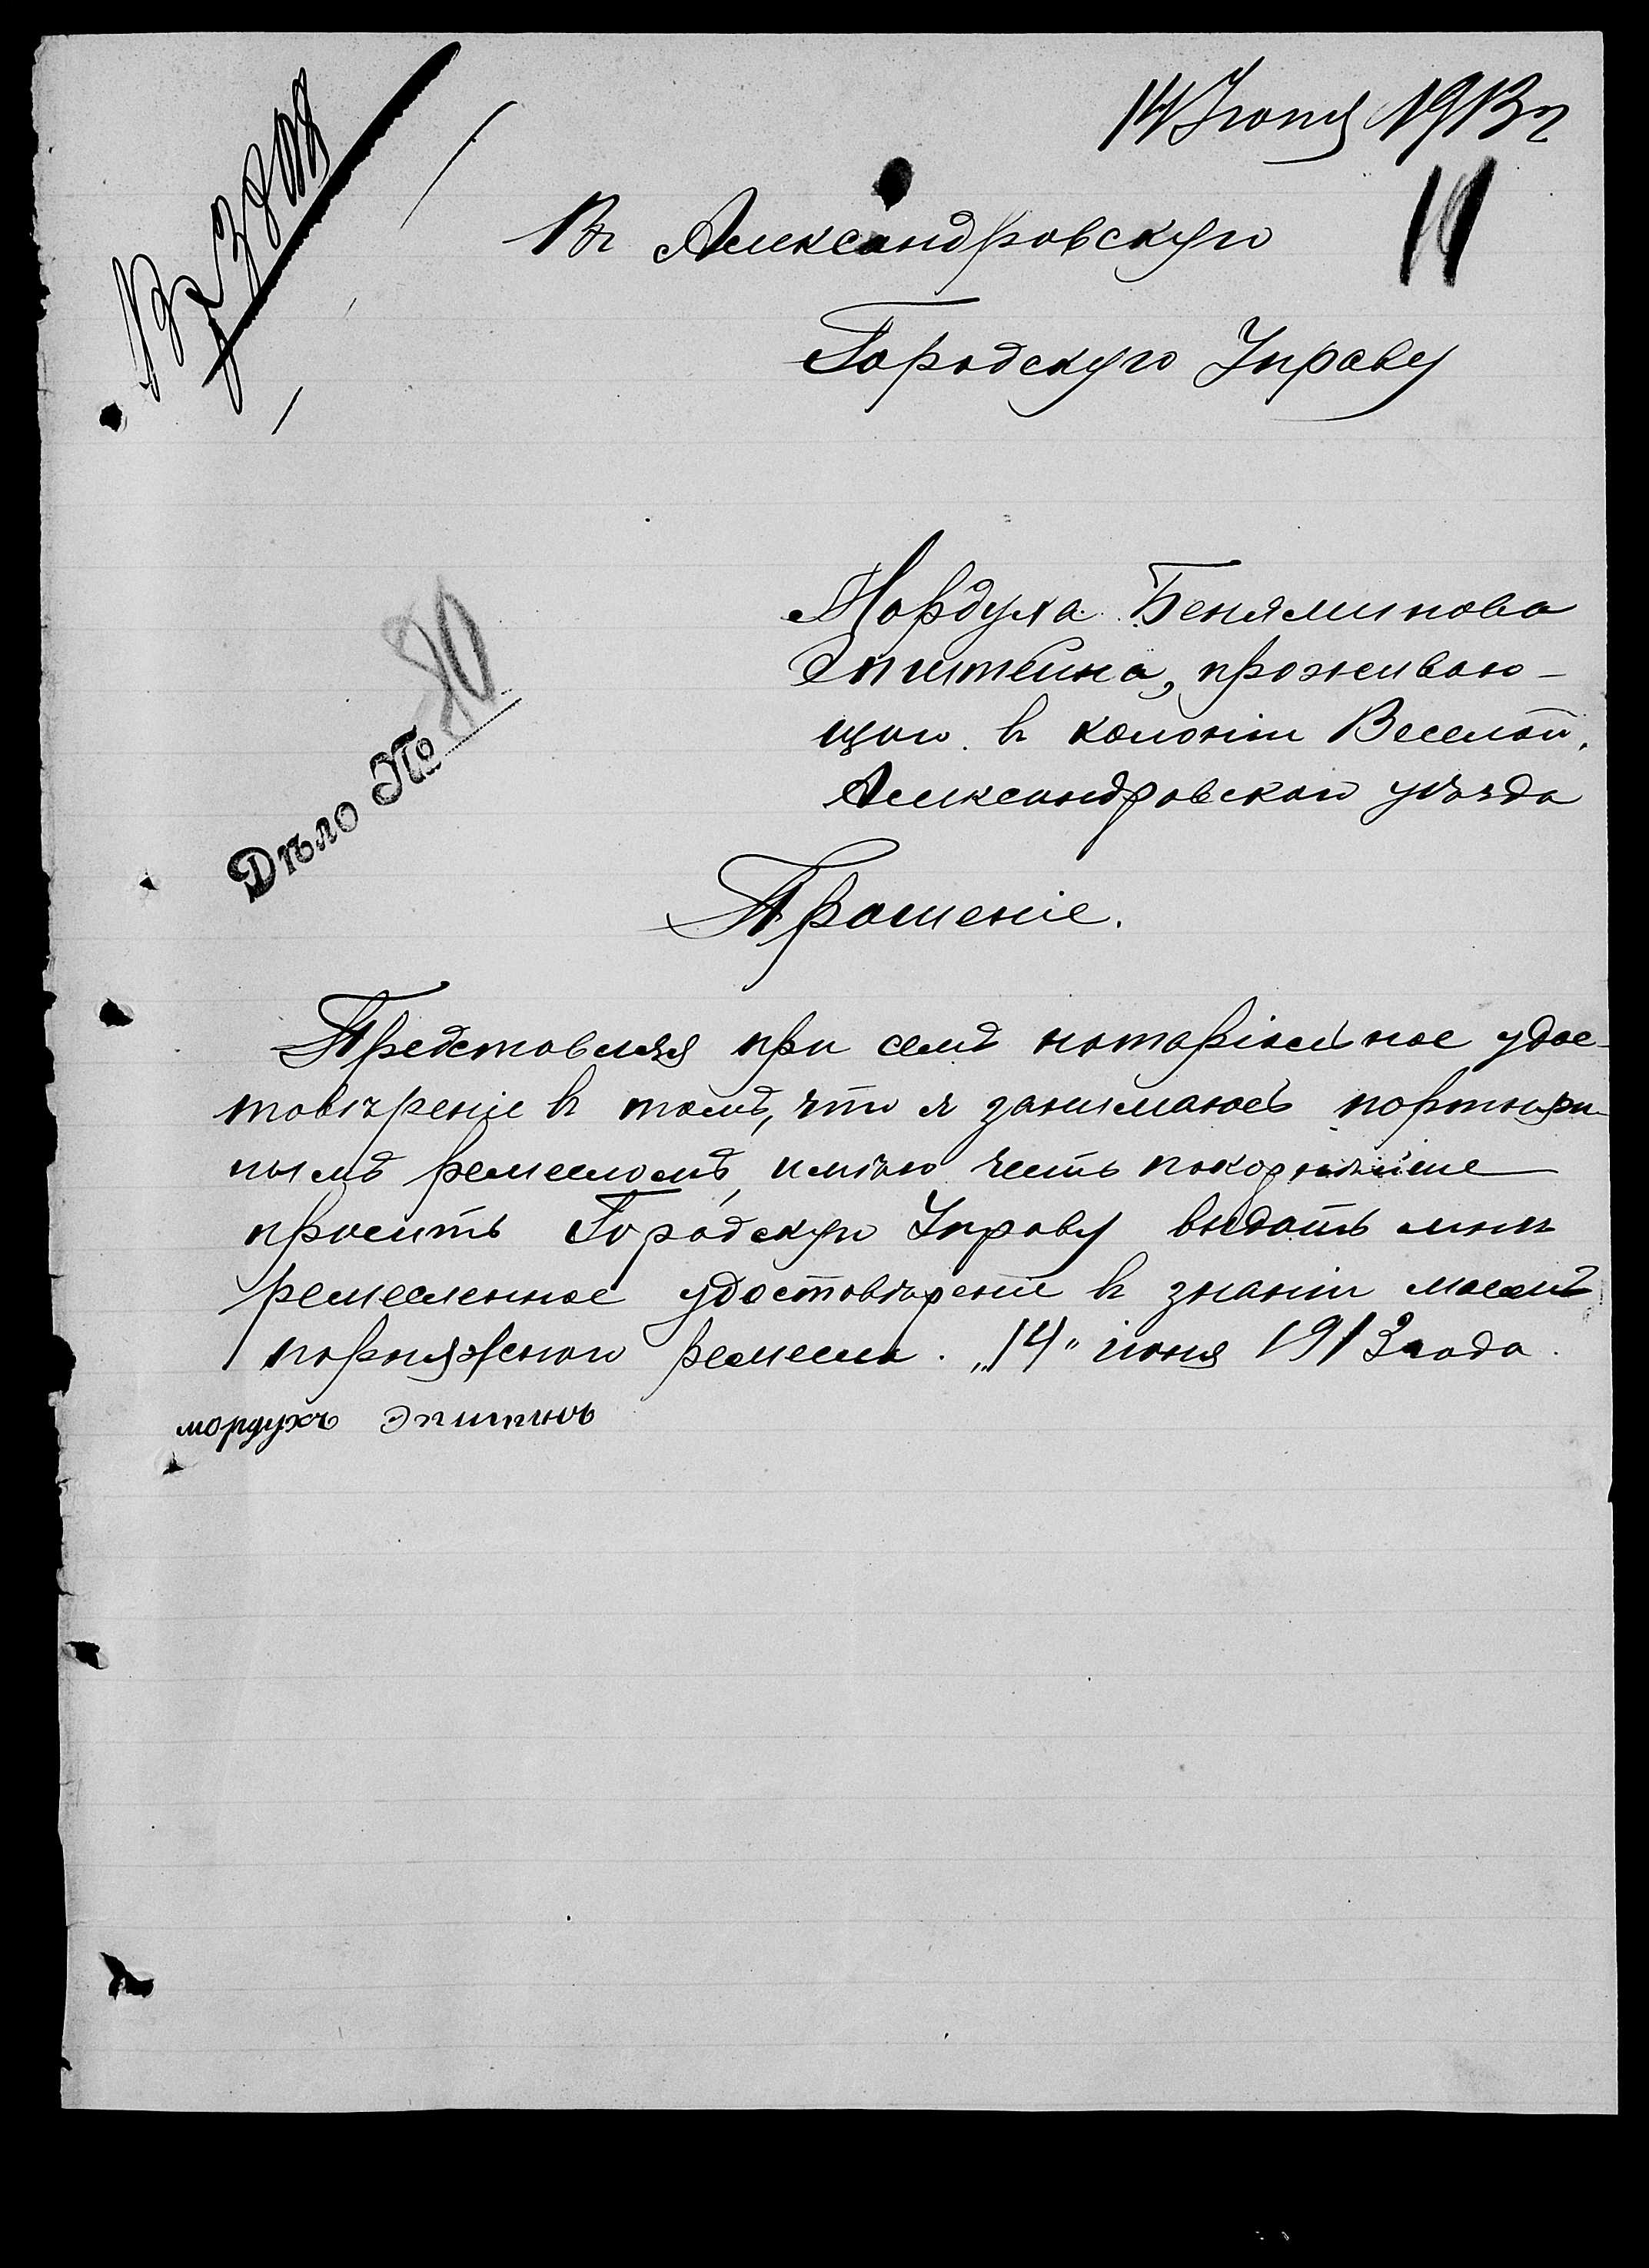 14 Іюня 1913 г
Въ Александровскую
Городскую Управу
Мордуха Беняминова
Эпштейна, проживаю-
щаго въ колоніи Веселой,
Александровскаго уѣзда
Дѣло № 80
Прошеніе.
Представляя при семъ нотаріальное удос-
товѣреніе въ томъ, что я занимаюсь портняж
нымъ ремесломъ, имѣю честь покорнѣйше
просить Городскую Управу выдать мнѣ
ремесленное удостовѣреніе въ знаніи моемъ
портняжнаго ремесла. „14" іюня 1913 года.
мордухъ Эпштинъ